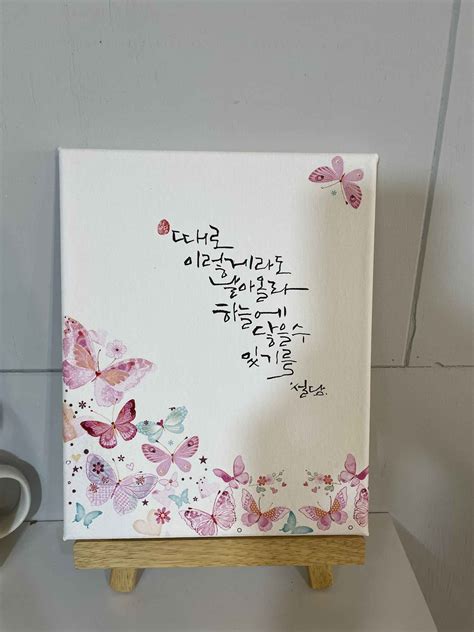 때로
이렇게라도
날아올라
하늘에
닿을수
있기를
설담.